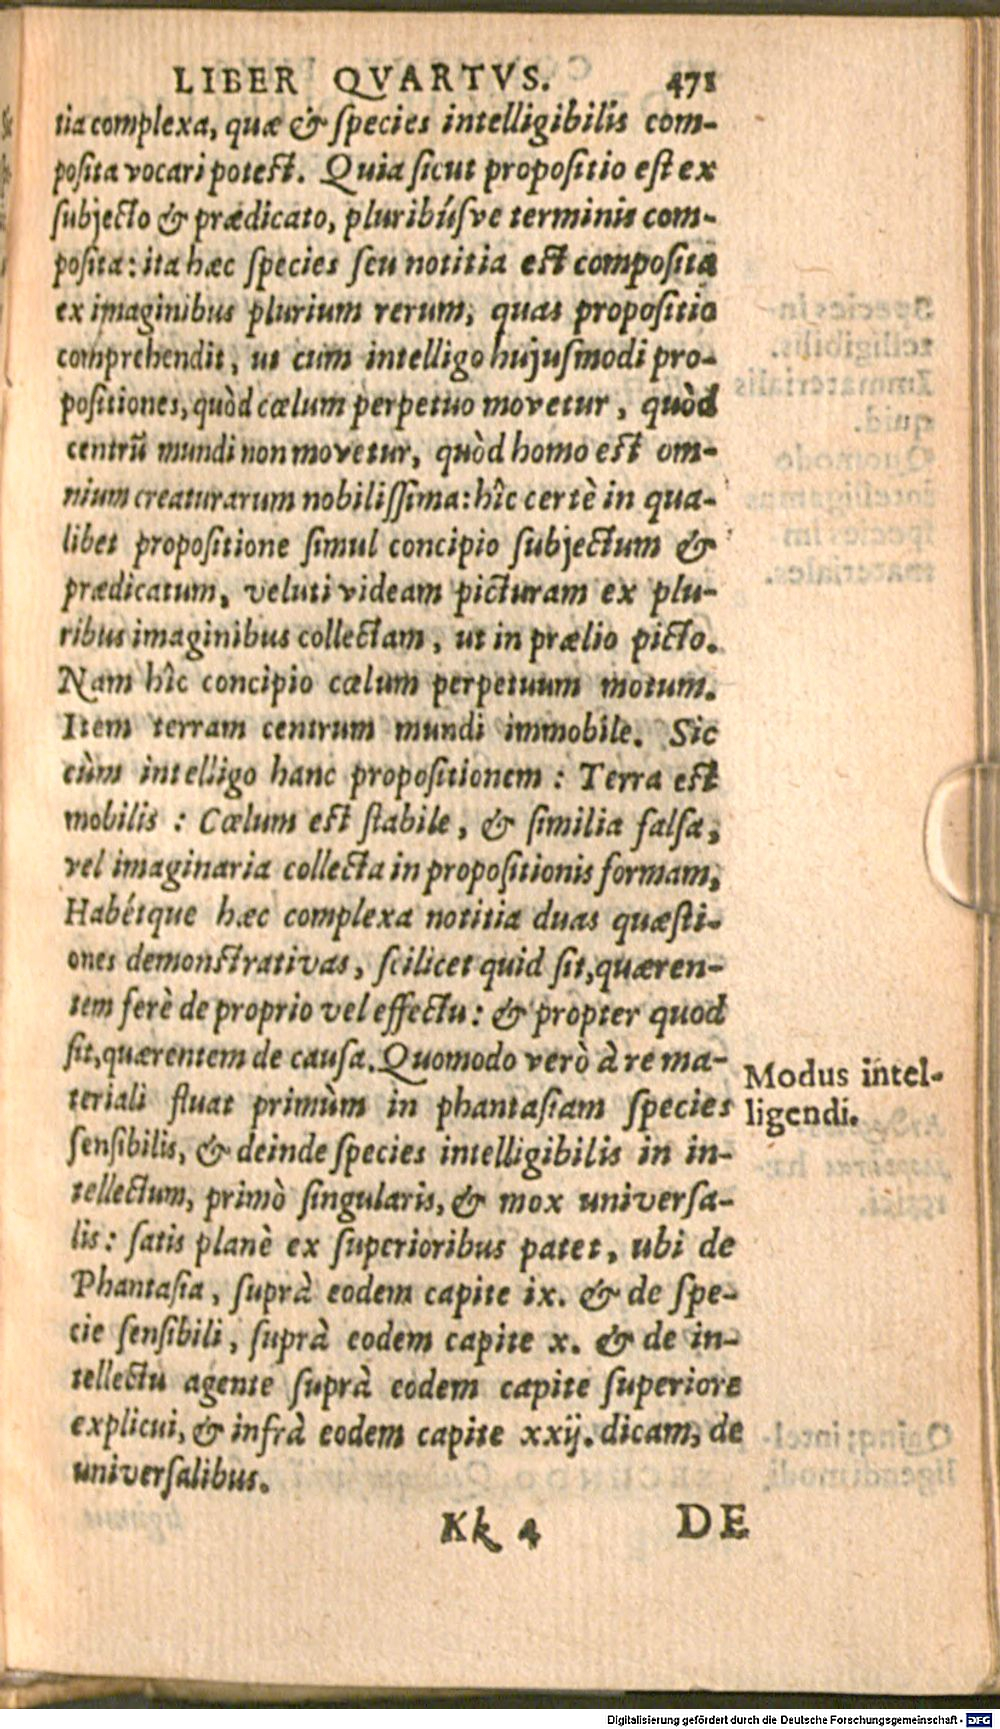 LIBER QVARTVS. 471
tia complexa, quæ & species intelligibilis com-
posita vocari potest. Quia sicut propositio est ex
subjecto & prædicato, pluribúsve terminis com-
posita: ita hæc species seu notitia est composita
ex imaginibus plurium rerum, quas propositio
comprehendit, ut cum intelligo hujusmodi pro-
positiones, quòd cœlum perpetuo movetur, quòd
centrū mundi non movetur, quòd homo est om-
nium creaturarum nobilissima: hîc certè in qua-
libet propositione simul concipio subjectum &
prædicatum, veluti videam picturam ex plu-
ribus imaginibus collectam, ut in prælio picto.
Nam hîc concipio cœlum perpetuum motum.
Item terram centrum mundi immobile. Sic
cùm intelligo hanc propositionem: Terra est
mobilis: Cœlum est stabile, & similia falsa,
vel imaginaria collecta in propositionis formam,
Habétque hæc complexa notitia duas quæsti-
ones demonstrativas, scilicet quid sit, quæren-
tem ferè de proprio vel effectu: & propter quod
sit, quærentem de causa. Quomodo verò à re ma-
teriali fluat primùm in phantasiam species
Modus intel-
ligendi.
sensibilis, & deinde species intelligibilis in in-
tellectum, primò singularis, & mox universa-
lis: satis planè ex superioribus patet, ubi de
Phantasia, suprà eodem capite ix. & de spe-
cie sensibili, suprà eodem capite x. & de in-
tellectu agente suprà eodem capite superiore
explicui, & infrà eodem capite xxij. dicam, de
universalibus.
Kk 4 DE
Digitalisierung gefördert durch die Deutsche Forschungsgemeinschaft - DFG